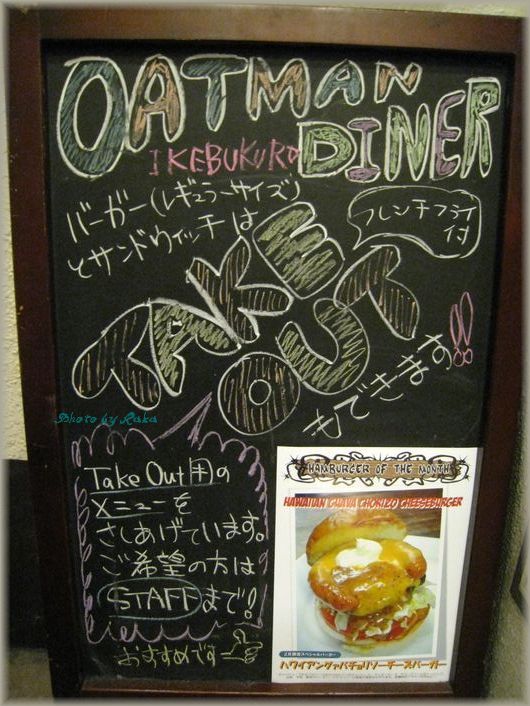 OATMAN
IKEBUKURO DINER
バーガー(レギュラーサイズ)
とサンドウィッチは
フレンチフライ
付
TAKE
OUT
もできます!!
Photo by Raka
Take Out用の
メニューを
さしあげています。
ご希望の方は
STAFFまで!
おすすめです
HAMBURGER OF THE MONTH
HAWAIIAN GUAVA CHORIZO CHEESEBURGER
2月限定スペシャルバーガー
ハワイアングァバチョリソーチーズバーガー